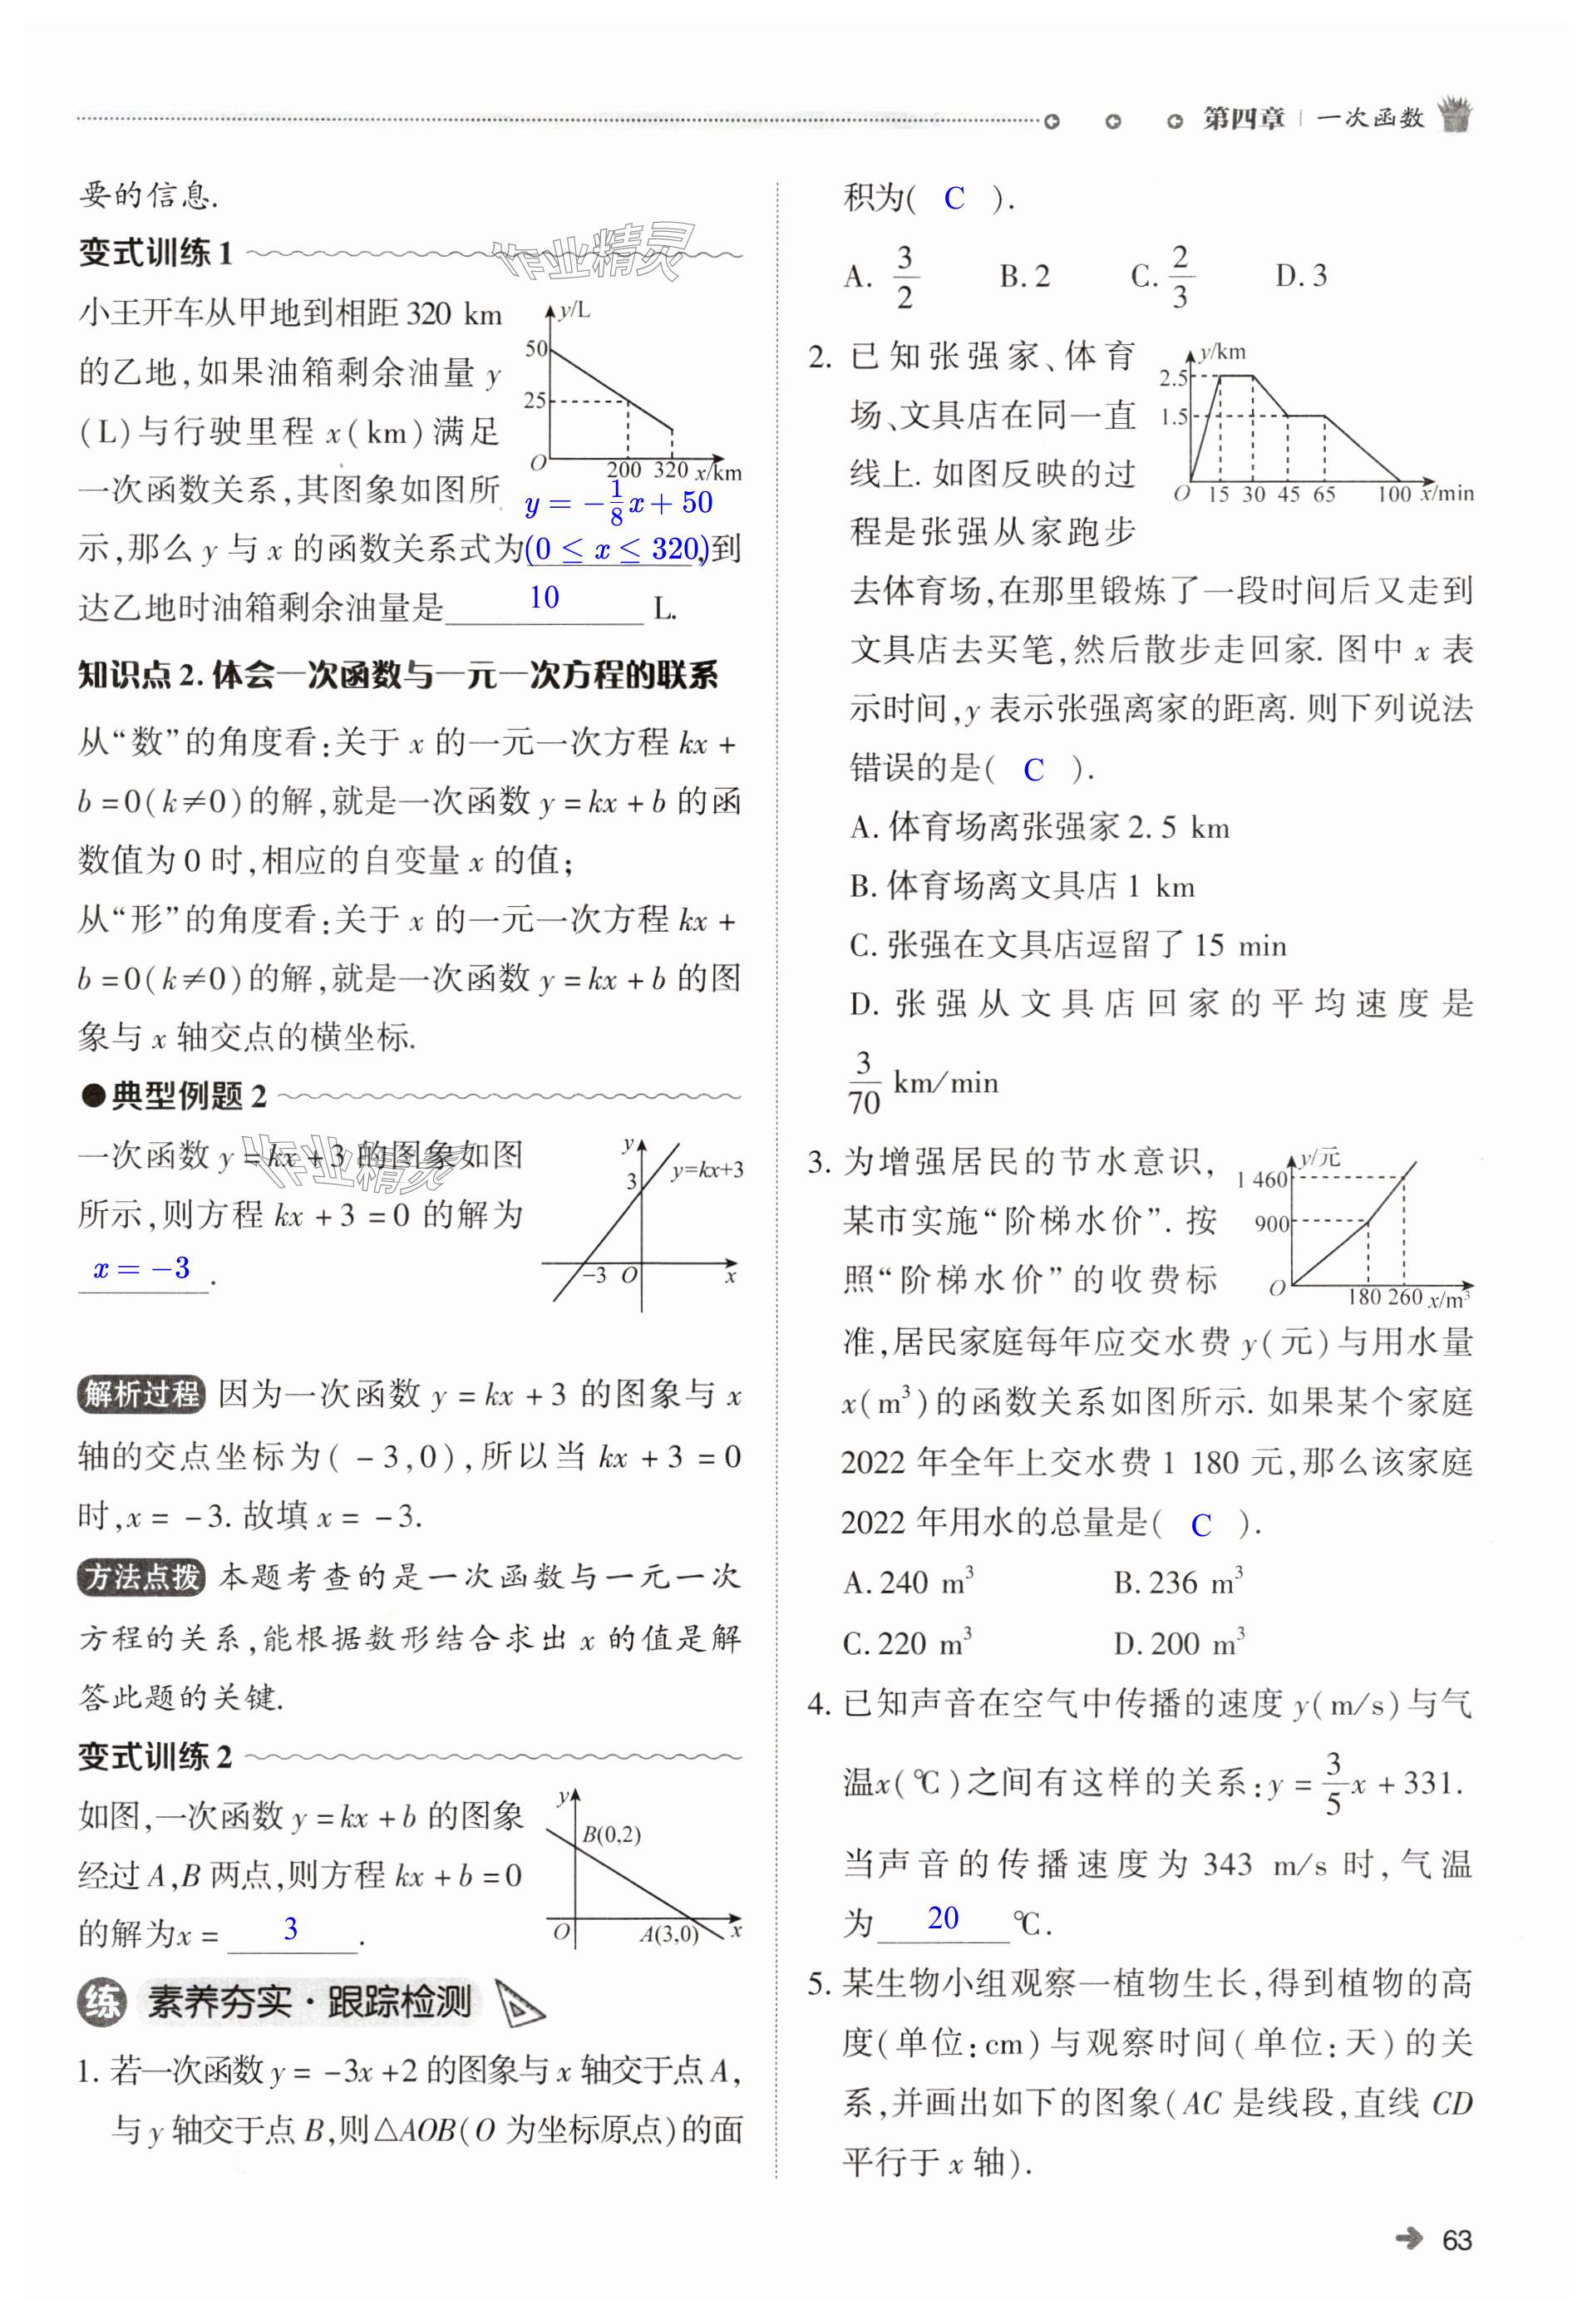 第四章 | 一次函数
要的信息.
变式训练1
小王开车从甲地到相距 320 km
的乙地,如果油箱剩余油量 y
(L)与行驶里程 x(km)满足
一次函数关系,其图象如图所
示,那么 y 与 x 的函数关系式为(0 ≤ x ≤ 320),到
y = -1/8x + 50
达乙地时油箱剩余油量是 10 L.
y/L
50
25
O
200 320 x/km
知识点 2. 体会一次函数与一元一次方程的联系
从“数”的角度看:关于 x 的一元一次方程 kx +
b =0(k≠0)的解,就是一次函数 y =kx +b 的函
数值为 0 时,相应的自变量 x 的值;
从“形”的角度看:关于 x 的一元一次方程 kx +
b =0(k≠0)的解,就是一次函数 y =kx +b 的图
象与 x 轴交点的横坐标.
●典型例题 2
一次函数 y =kx +3 的图象如图
所示,则方程 kx +3 =0 的解为
x = -3 .
y
3
y=kx+3
-3 O x
解析过程 因为一次函数 y = kx + 3 的图象与 x
轴的交点坐标为( -3,0),所以当 kx + 3 = 0
时,x = -3. 故填 x = -3.
方法点拨 本题考查的是一次函数与一元一次
方程的关系,能根据数形结合求出 x 的值是解
答此题的关键.
变式训练2
如图,一次函数 y =kx +b 的图象
经过 A,B 两点,则方程 kx +b =0
的解为x = 3 .
y
B(0,2)
O A(3,0) x
练 素养夯实·跟踪检测
1. 若一次函数 y = -3x +2 的图象与 x 轴交于点 A,
与 y 轴交于点 B,则△AOB(O 为坐标原点)的面
积为( C ).
A. 3/2 B. 2 C. 2/3 D. 3
2. 已知张强家、体育
场、文具店在同一直
线上. 如图反映的过
程是张强从家跑步
去体育场,在那里锻炼了一段时间后又走到
文具店去买笔,然后散步走回家. 图中 x 表
示时间,y 表示张强离家的距离. 则下列说法
错误的是( C ).
y/km
2.5
1.5
O 15 30 45 65 100 x/min
A. 体育场离张强家 2. 5 km
B. 体育场离文具店 1 km
C. 张强在文具店逗留了 15 min
D. 张强从文具店回家的平均速度是
3/70 km/min
3. 为增强居民的节水意识,
某市实施“阶梯水价”. 按
照“阶梯水价”的收费标
准,居民家庭每年应交水费 y(元)与用水量
x(m³)的函数关系如图所示. 如果某个家庭
2022 年全年上交水费 1 180 元,那么该家庭
2022 年用水的总量是( C ).
y/元
1 460
900
O
180 260 x/m³
A. 240 m³ B. 236 m³
C. 220 m³ D. 200 m³
4. 已知声音在空气中传播的速度 y(m/s)与气
温x(℃)之间有这样的关系:y = 3/5x + 331.
当声音的传播速度为 343 m/s 时,气温
为 20 ℃.
5. 某生物小组观察一植物生长,得到植物的高
度(单位:cm)与观察时间(单位:天)的关
系,并画出如下的图象(AC 是线段,直线 CD
平行于 x 轴).
63
作业精灵
作业精灵